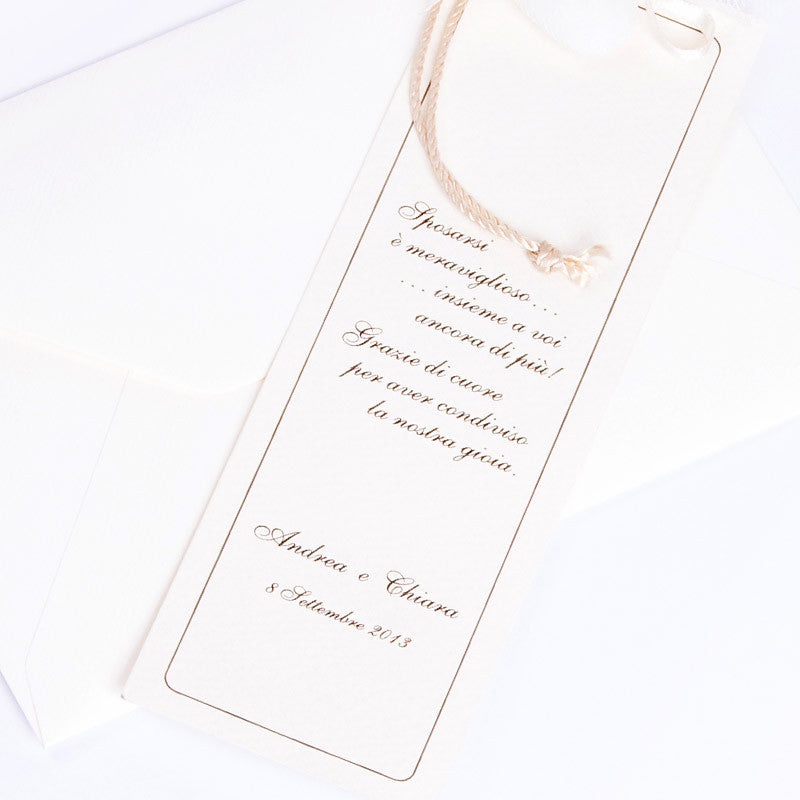 Sposarsi
è meraviglioso...
...insieme a voi
ancora di più!
Grazie di cuore
per aver condiviso
la nostra gioia.
Andrea e Chiara
8 Settembre 2013